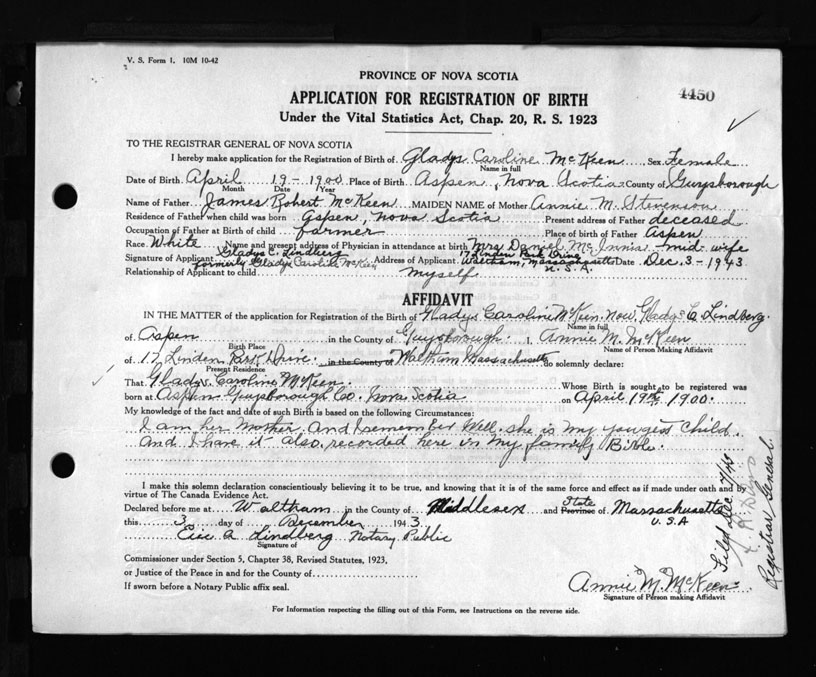 V. S. Form 1. 10M 10-42
PROVINCE OF NOVA SCOTIA
4450
APPLICATION FOR REGISTRATION OF BIRTH
Under the Vital Statistics Act, Chap. 20, R. S. 1923
TO THE REGISTRAR GENERAL OF NOVA SCOTIA
I hereby make application for the Registration of Birth of Gladys Caroline McKeen Sex Female
Name in full
Date of Birth April 19 - 1900 Place of Birth Aspen, Nova Scotia County of Guysborough
Month Day Year
Name of Father James Robert McKeen MAIDEN NAME of Mother Annie M. Stevenson
Residence of Father when child was born Aspen, Nova Scotia Present address of Father deceased
Occupation of Father at Birth of child farmer Place of birth of Father Aspen
Race White Name and present address of Physician in attendance at birth Mrs Daniel McInnis - mid-wife
Signature of Applicant Gladys C. Lindberg formerly Gladys Caroline McKeen Address of Applicant 17 Linden Park Drive Waltham, Massachusetts U.S.A. Date Dec. 3 - 1943
Relationship of Applicant to child myself
AFFIDAVIT
IN THE MATTER of the application for Registration of the Birth of Gladys Caroline McKeen. now Gladys C. Lindberg.
Name in full
of Aspen in the County of Guysborough. I, Annie M. McKeen
Birth Place Name of Person Making Affidavit
of 17 Linden Park Drive in the County of Waltham Massachusetts do solemnly declare:
Present Residence
That Gladys Caroline McKeen. Whose Birth is sought to be registered was
born at Aspen Guysborough Co. Nova Scotia on April 19th 1900.
My knowledge of the fact and date of such Birth is based on the following Circumstances:
I am her mother. And I remember well. she is my youngest child.
And I have it also recorded here in my family Bible.
I make this solemn declaration conscientiously believing it to be true, and knowing that it is of the same force and effect as if made under oath and by
virtue of The Canada Evidence Act.
Declared before me at Waltham in the County of Middlesex and State Province of Massachusetts
this 3 day of December 1943 U.S.A
Eric A. Lindberg Notary Public
Signature of
Commissioner under Section 5, Chapter 38, Revised Statutes, 1923,
or Justice of the Peace in and for the County of
If sworn before a Notary Public affix seal.
Annie M. McKeen
Signature of Person making Affidavit
For Information respecting the filling out of this Form, see Instructions on the reverse side.
Filed Dec 7/43
Registrar General